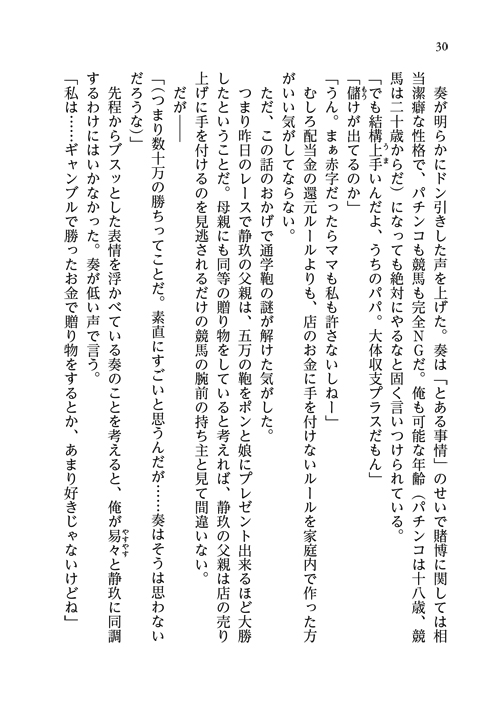 30
　奏が明らかにドン引きした声を上げた。奏は「とある事情」のせいで賭博に関しては相
当潔癖な性格で、パチンコも競馬も完全NGだ。俺も可能な年齢（パチンコは十八歳、競
馬は二十歳からだ）になっても絶対にやるなと固く言いつけられている。
「でも結構上手いんだよ、うちのパパ。大体収支プラスだもん」
「儲けが出てるのか」
「うん。まぁ赤字だったらママも私も許さないしねー」
　むしろ配当金の還元ルールよりも、店のお金に手を付けないルールを家庭内で作った方
がいい気がしてならない。
　ただ、この話のおかげで通学鞄の謎が解けた気がした。
　つまり昨日のレースで静玖の父親は、五万の鞄をポンと娘にプレゼント出来るほど大勝
したということだ。母親にも同等の贈り物をしていると考えれば、静玖の父親は店の売り
上げに手を付けるのを見逃されるだけの競馬の腕前の持ち主と見て間違いない。
　だが――
「（つまり数十万の勝ちってことだ。素直にすごいと思うんだが……奏はそうは思わない
だろうな）」
　先程からブスッとした表情を浮かべている奏のことを考えると、俺が易々と静玖に同調
するわけにはいかなかった。奏が低い声で言う。
「私は……ギャンブルで勝ったお金で贈り物をするとか、あまり好きじゃないけどね」